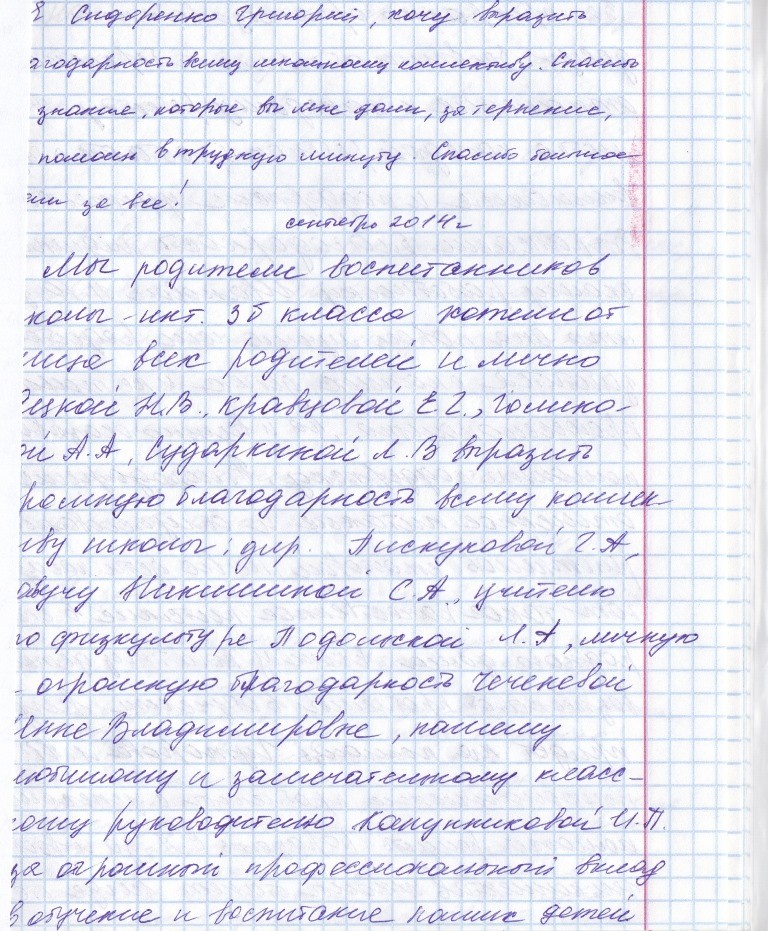 Я Сидоренко Григорий, хочу выразить
агодарность всему школьному коллективу. Спасибо
знание, которые вы мне дали, за терпение,
помощь в трудную минуту. Спасибо большое
за все!
сентябрь 2014 г
Мы родители воспитанников
колы-инт. 3б класса хотели от
лица всех родителей и лично
ецкой Н.В., Кравцовой Е Г., Голико-
ой А.А, Сударкиной Л.В выразить
ромную благодарность всему коллек-
иву школы: дир. Пискуковой Г.А,
авучу Никишиной С.А., учителю
по физкультуре Подольской Л.А, личную
- огромную благодарность Чеченевой
Владимировне, нашему
любимому и замечательному класс-
ному руководителю Капунниковой И.П.
за огромный профессиональный вклад
в обучение и воспитание наших детей